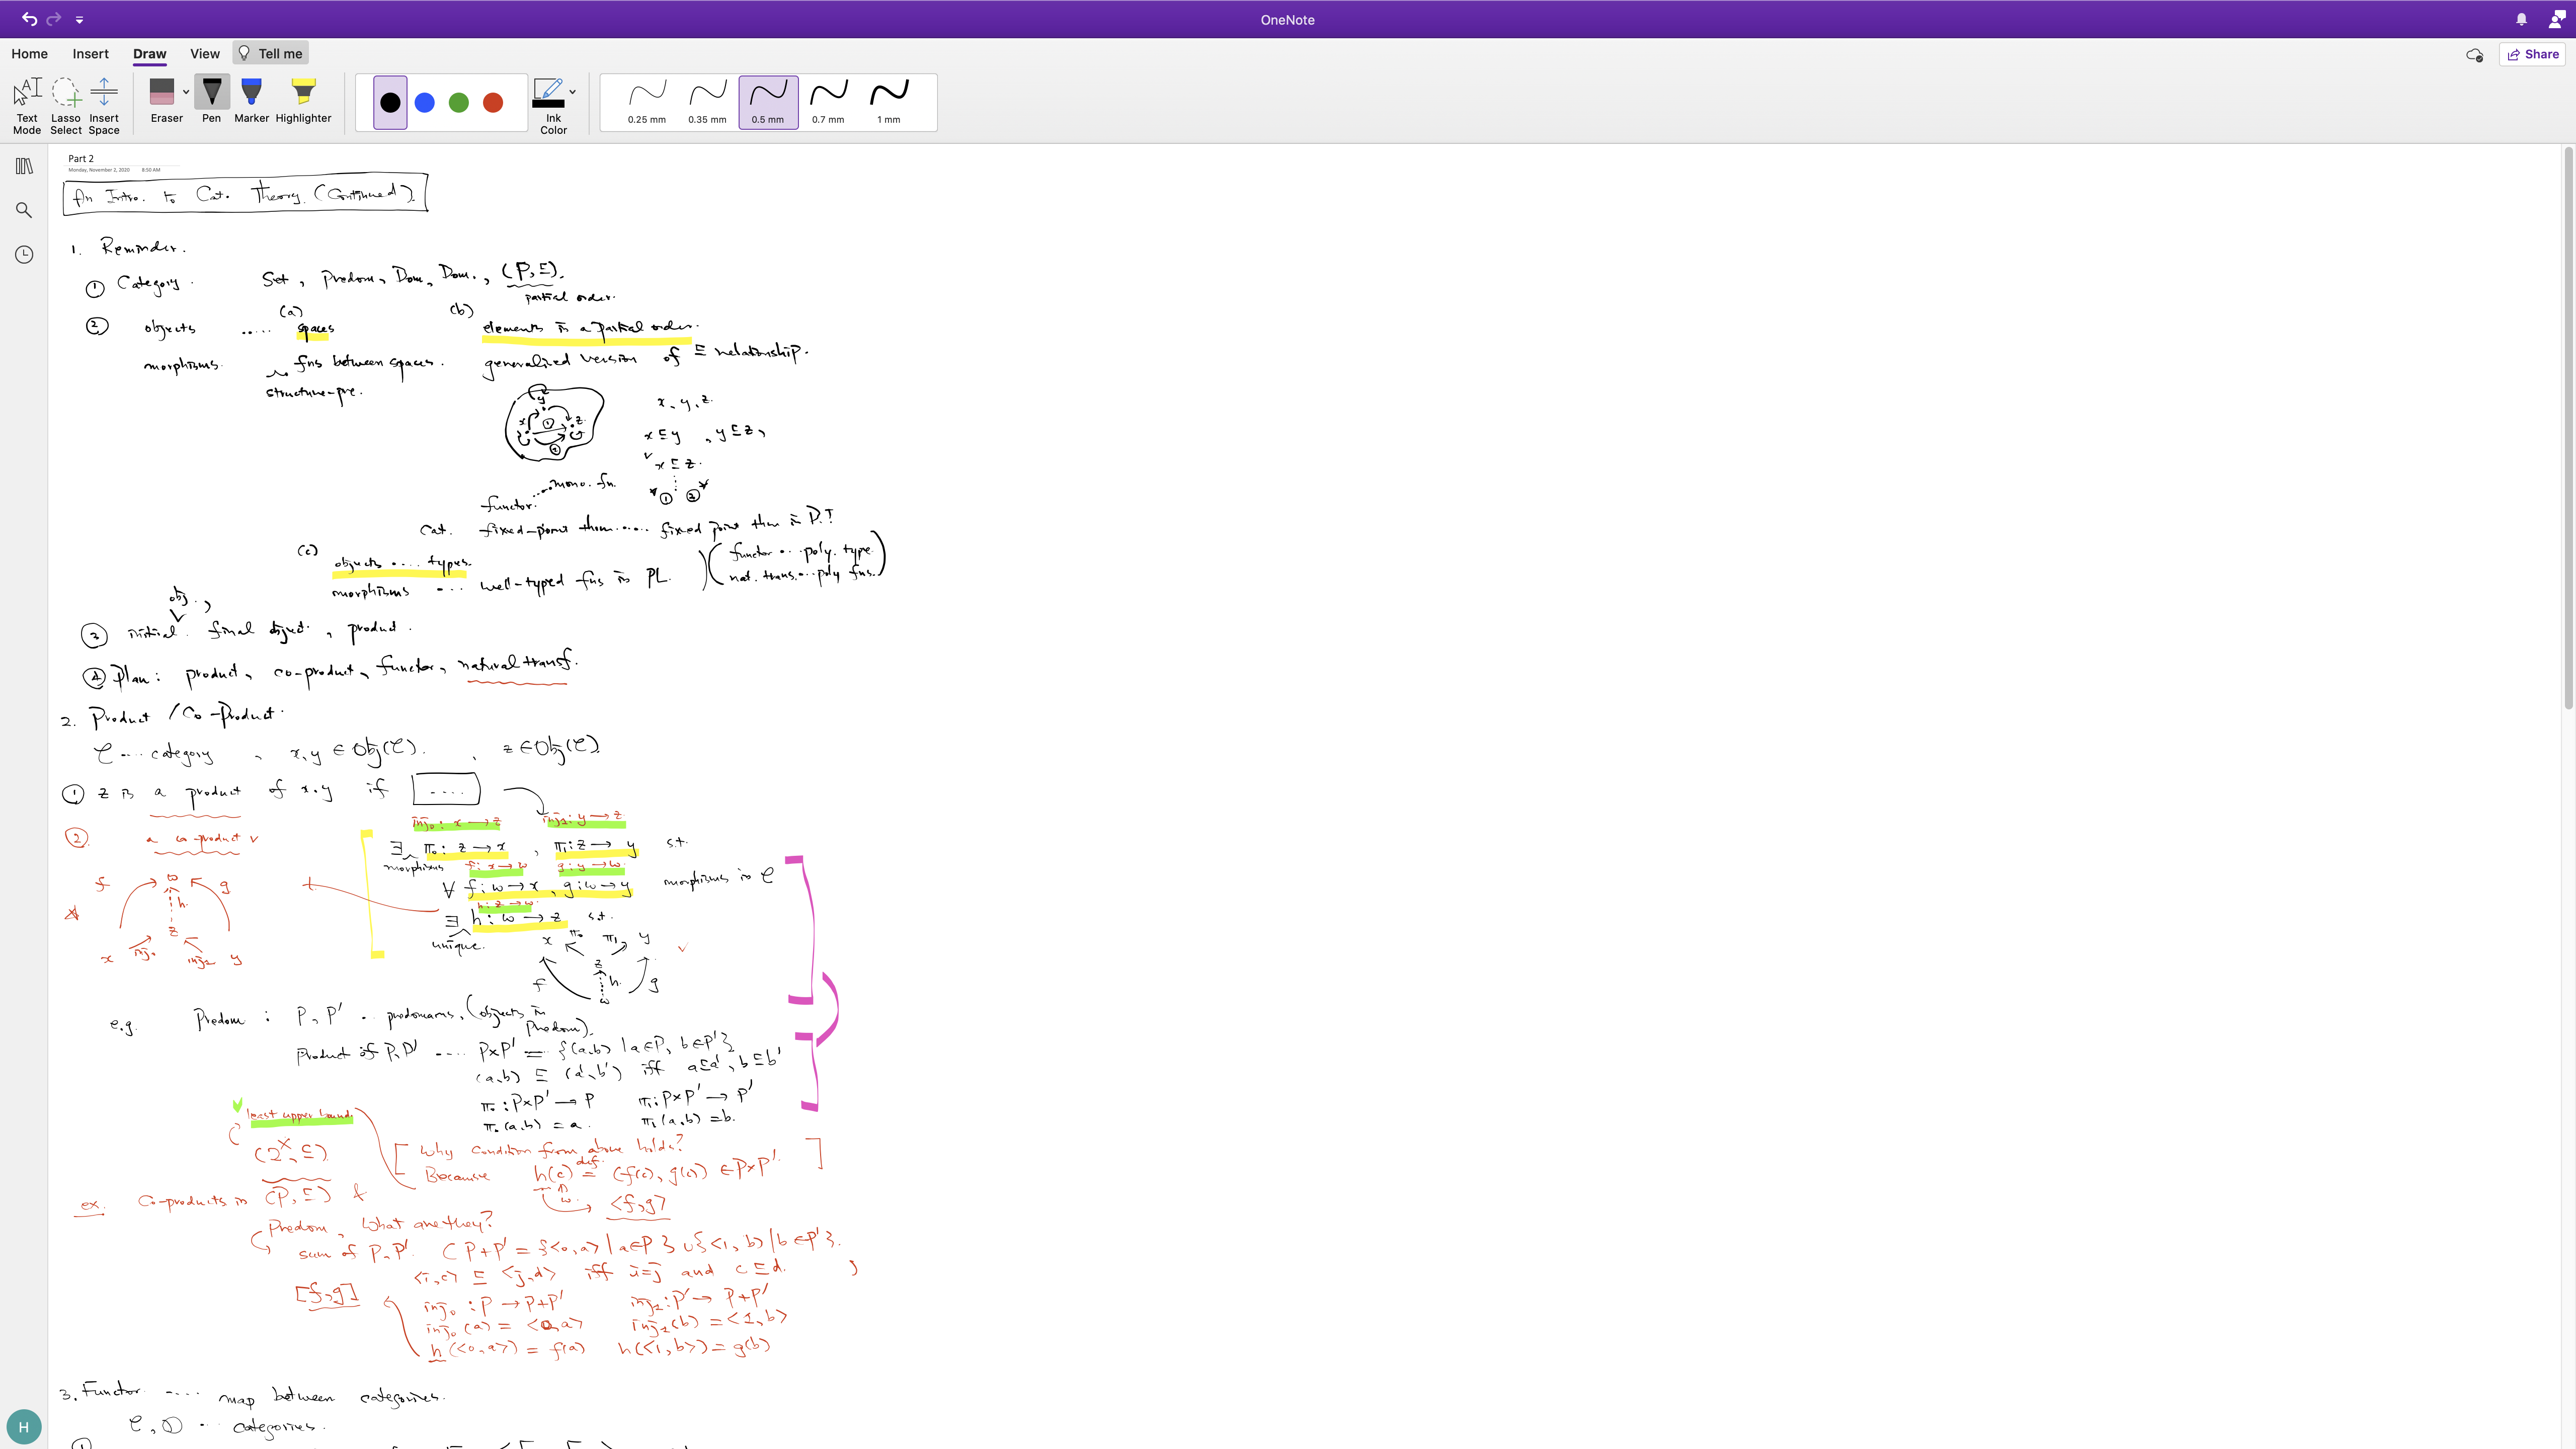 OneNote
Home Insert Draw View Tell me
Share
Text Mode
Lasso Select
Insert Space
Eraser
Pen
Marker
Highlighter
Ink Color
0.25 mm
0.35 mm
0.5 mm
0.7 mm
1 mm
Part 2
Monday, November 2, 2020 8:50 AM
An Intro. to Cat. Theory. (Continued).
1. Reminder.
① Category. Set, Predom, Dom, Dom., (P,⊑).
partial order.
(a) (b)
② objects ..... spaces elements in a partial order.
morphisms. fns between spaces. generalized version of ⊑ relationship.
structure-pre.
y
x z
① ②
x, y, z.
x ⊑ y , y ⊑ z,
x ⊑ z.
① ②
functor. ..... mono. fn.
Cat. fixed-point thm ..... fixed point thm in D.T
(c) objects .... types.
morphisms .... well-typed fns in PL.
functor ... poly. type.
nat. trans. ... poly fns.
obj.,
③ initial. final object. , product.
④ Plan: product, co-product, functor, natural transf.
2. Product /Co-Product.
C .... category , x,y ∈ Obj(C). , z ∈ Obj(C)
① z is a product of x.y if ....
inj₀: x → z inj₁: y → z
② a co-product
∃ π₀: z → x , π₁: z → y s.t.
morphisms f: x → w g: y → w
∀ f: w → x , g: w → y morphisms in C
h: z → w.
∃ h: w → z s.t.
unique.
f w g
h.
z
x inj₀ inj₁ y
x π₀ π₁ y
z
f h. g
w
e.g. Predom : P, P' .. predomains, (objects in
Predom).
Product of P,P' .... P×P' = {(a,b) | a∈P, b∈P'}
(a,b) ⊑ (a',b') iff a⊑a', b⊑b'
π₀: P×P' → P π₁: P×P' → P'
π₀(a,b) = a. π₁(a,b) = b.
least upper bound.
(2ˣ, ⊆)
[ Why condition from above holds? ]
Because h(c) def= (f(c), g(c)) ∈ P×P'.
w.
<f,g>
ex. Co-products in (P,⊑) &
Predom, What are they?
sum of P,P'. (P+P' = {<0,a> | a∈P} ∪ {<1,b> | b∈P'}.
<i,c> ⊑ <j,d> iff i=j and c⊑d. )
[f,g]
inj₀: P → P+P' inj₁: P' → P+P'
inj₀(a) = <0,a> inj₁(b) = <1,b>
h(<0,a>) = f(a) h(<1,b>) = g(b)
3. Functor .... map between categories.
C, D .. categories.
H